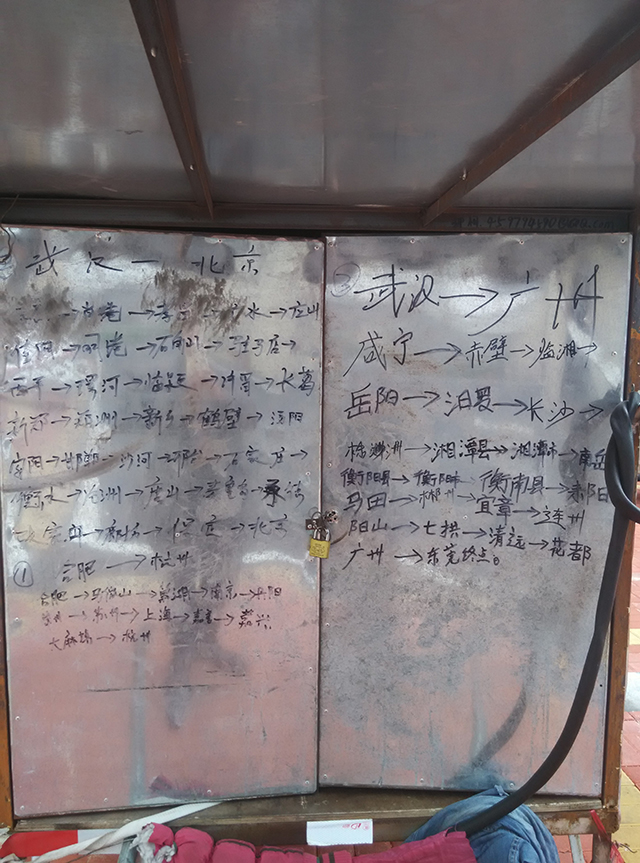 武汉一北京
→孝 →水→庐山
信阳→明港→石 山→驻马店→
西平→漯河→临颍→许昌→长葛
新郑→郑州→新乡→鹤壁→汤阴
安阳→邯郸→沙河→邢台→石家庄→
衡水→沧州→唐山→ →承德
→廊坊→保定→北京
① 合肥→杭州
合肥→马鞍山→芜湖→南京→丹阳
→苏州→上海→嘉善→嘉兴
大麻镇→杭州
② 武汉→广州
咸宁→赤壁→临湘→
岳阳→汨罗→长沙→
株洲→湘潭县→湘潭市→南岳
衡阳县→衡阳市→衡南县→耒阳
马田→郴州→宜章→连州
阳山→七拱→清远→花都
广州→东莞终点。